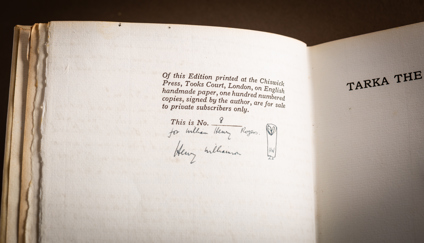 Of this Edition printed at the Chiswick
Press, Tooks Court, London, on English
handmade paper, one hundred numbered
copies, signed by the author, are for sale
to private subscribers only.
This is No. 8
for William Henry
Henry Williamson
TARKA THE